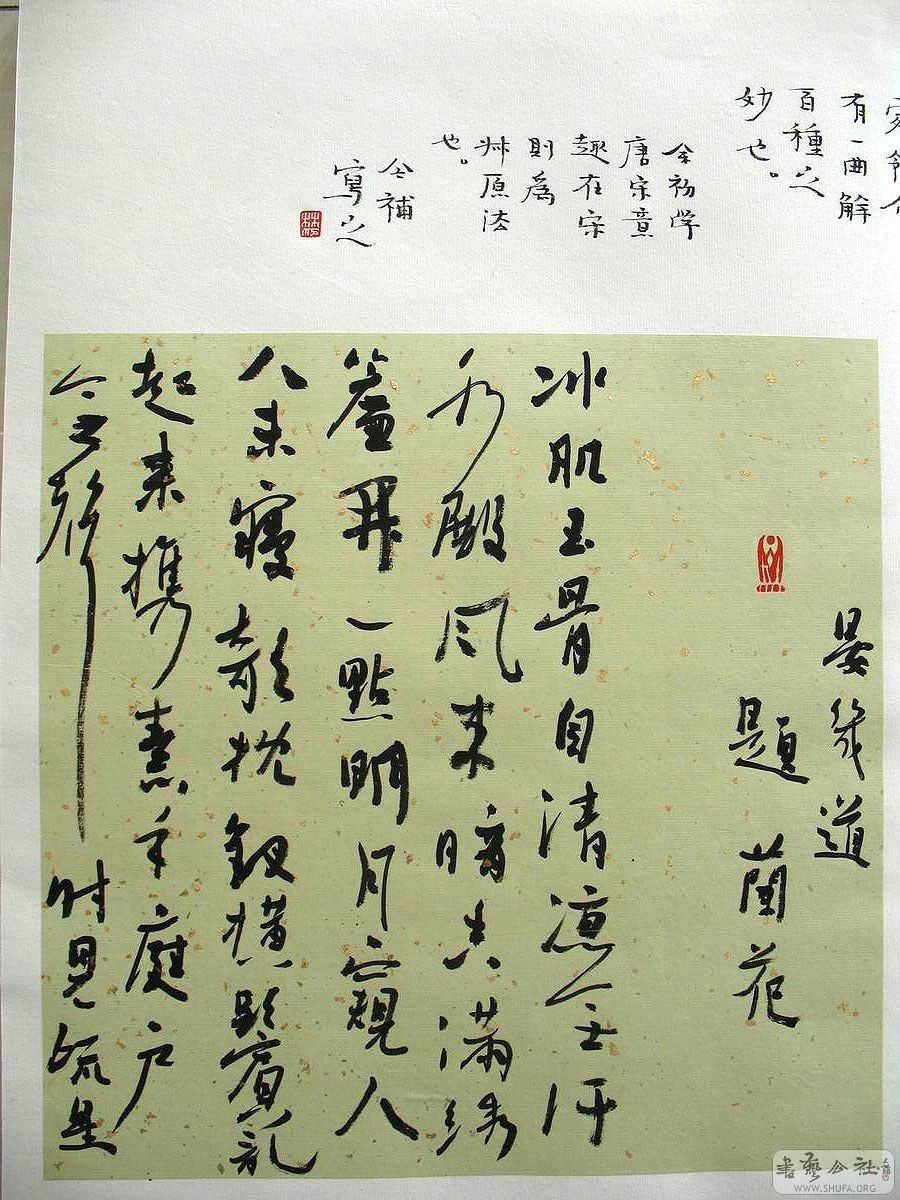 有一曲解
百種之
妙也。
余初学
唐宋意
趣在宋
則為
艸原法
也。
仝補
寫之
晏幾道
題蘭花
冰肌玉骨自清凉無汗
水殿風来暗香滿绣
簾開一點明月窺人
人未寢欹枕釵橫鬢亂
起来携素手庭户
無聲時見疏星
書藝公社
WWW.SHUFA.ORG